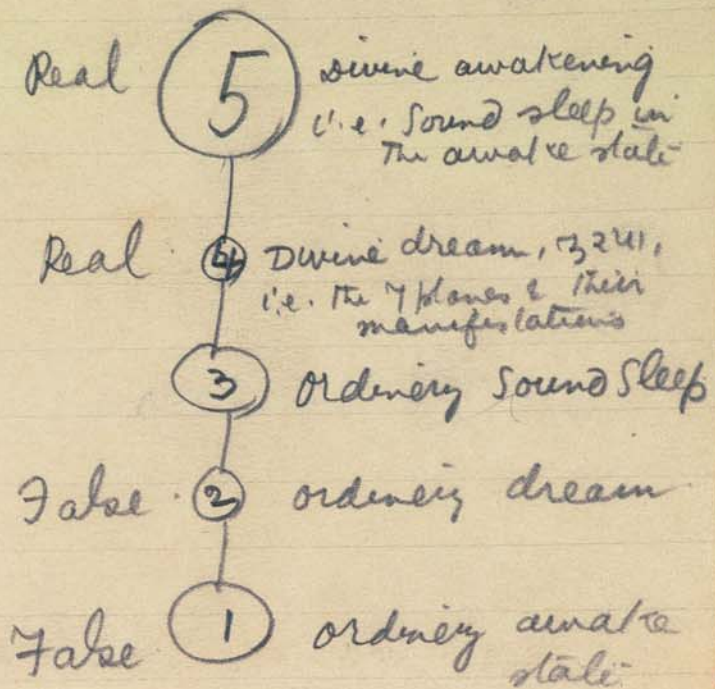 Real 5 Divine awakening
i.e. Sound sleep in
the awake state
Real 4 Divine dream,
i.e. the 7 planes & their
manifestations
3 ordinery Sound Sleep
False 2 ordinery dream
False 1 ordinery awake
state